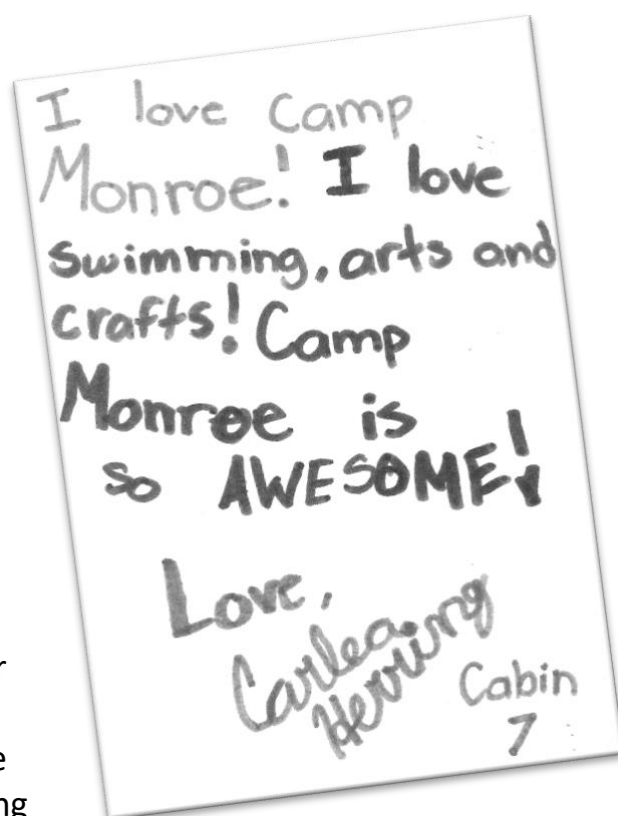 I love Camp
Monroe! I love
swimming, arts and
crafts! Camp
Monroe is
so AWESOME!
Love,
Carlea
Herring
Cabin
7